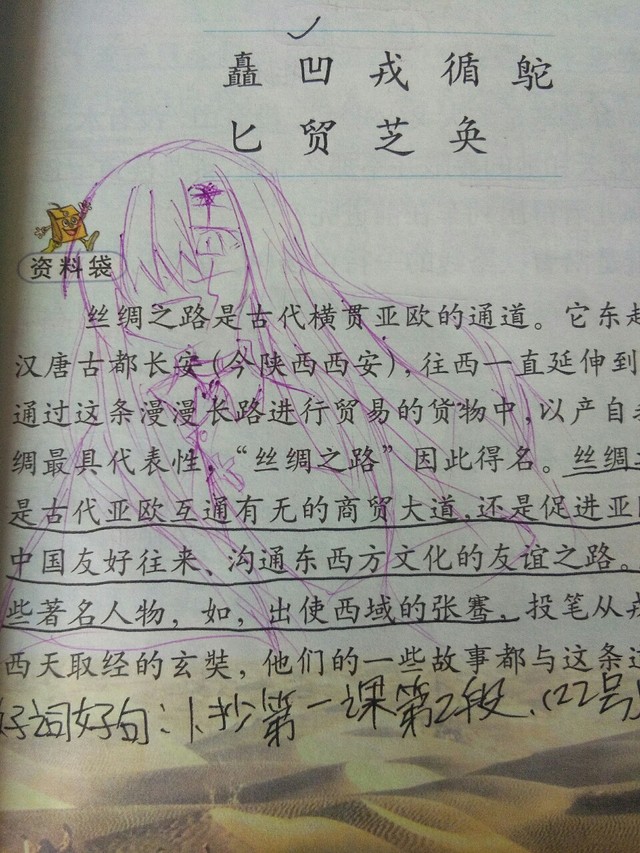 矗 凹 戎 循 鸵
匕 贸 芝 奂
资料袋
丝绸之路是古代横贯亚欧的通道。它东起
汉唐古都长安(今陕西西安),往西一直延伸到
通过这条漫漫长路进行贸易的货物中,以产自
绸最具代表性,“丝绸之路”因此得名。丝绸
是古代亚欧互通有无的商贸大道,还是促进亚
中国友好往来、沟通东西方文化的友谊之路。
些著名人物,如,出使西域的张骞,投笔从戎
西天取经的玄奘,他们的一些故事都与这条
好词好句:1.抄第一课第2段.(22号